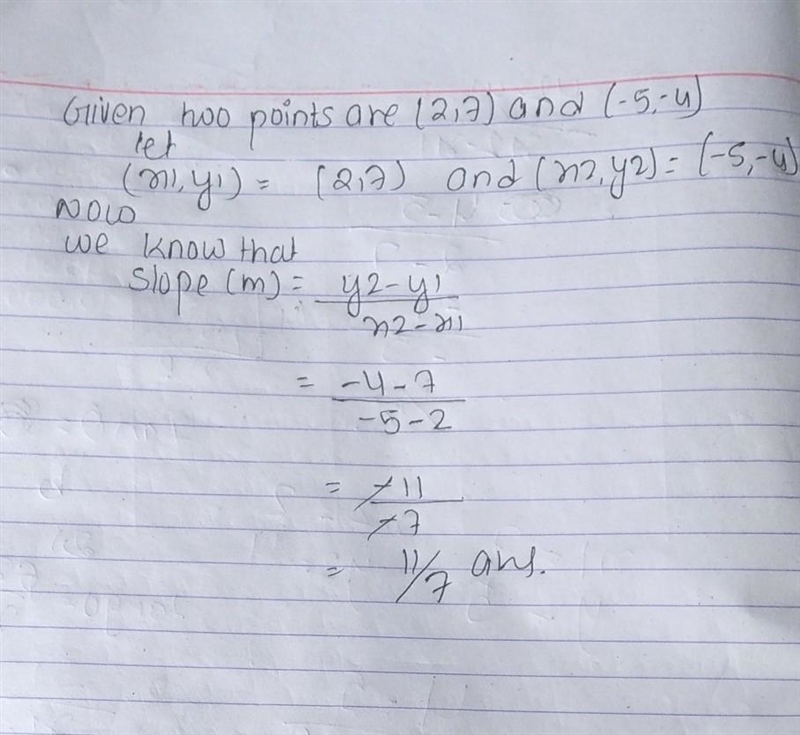 Given two points are (2,7) and (-5,-4)
let
(x1,y1) = (2,7) and (x2,y2) = (-5,-4)
Now
we know that
Slope (m) = y2-y1
x2-x1
= -4-7
-5-2
= -11
-7
= 11/7 ans.